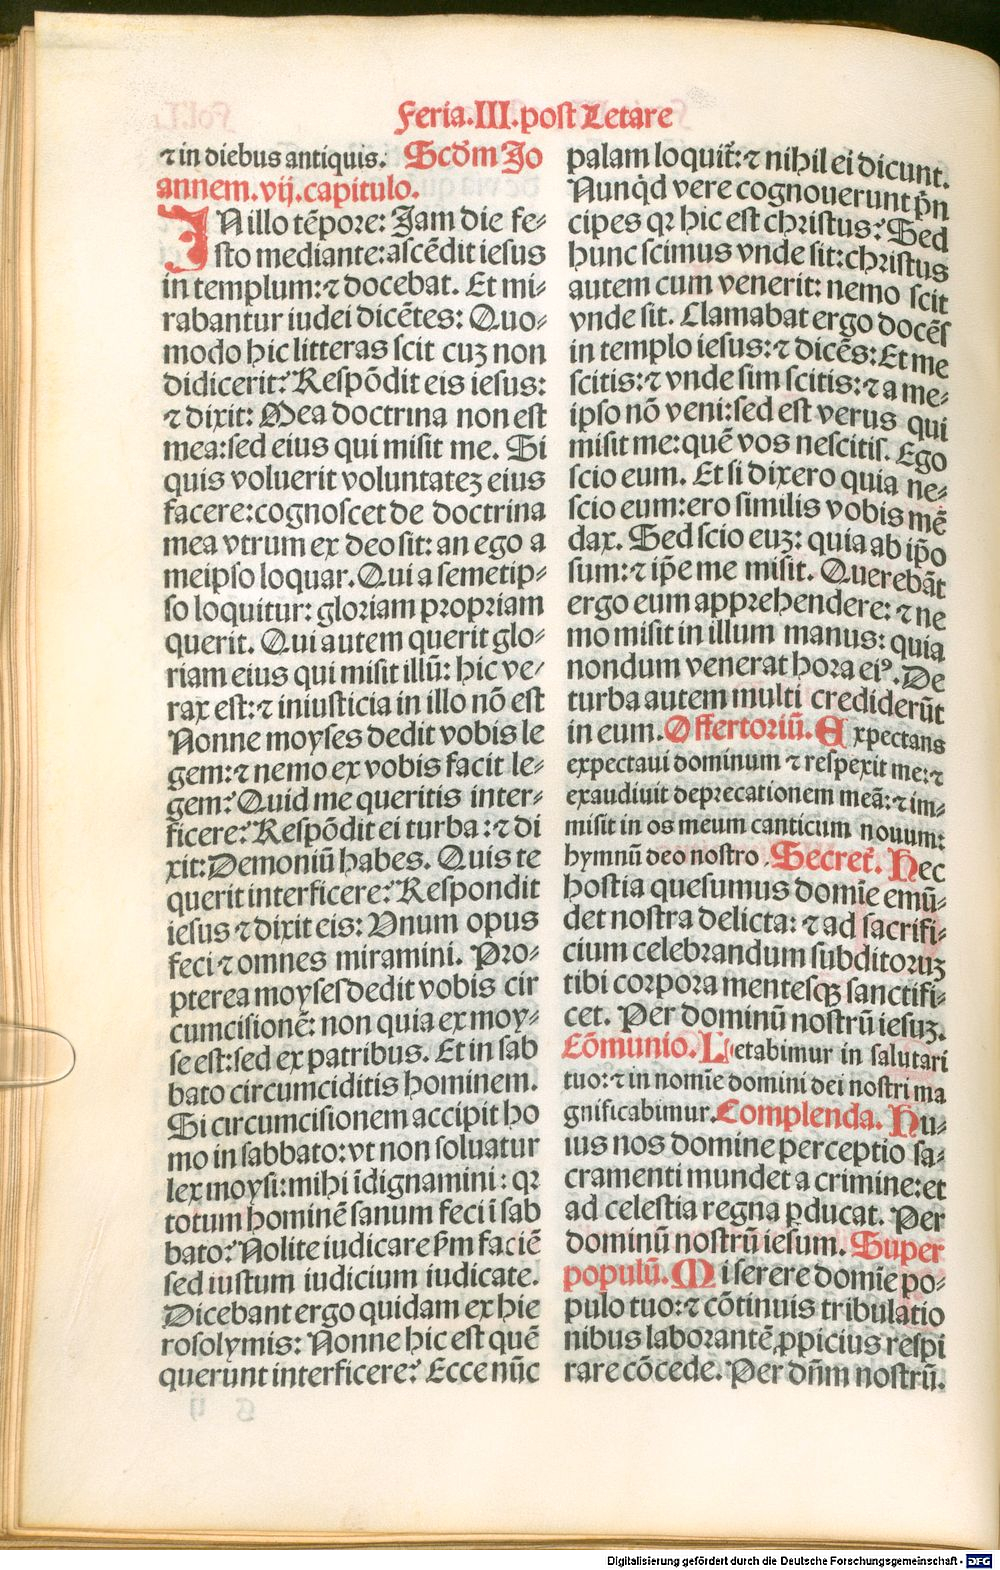 Feria.III.post Letare
⁊ in diebus antiquis. Scd̃m Jo
annem.vij.capitulo.
IN illo tẽpore: Jam die fe-
sto mediante: ascẽdit iesus
in templum: ⁊ docebat. Et mi-
rabantur iudei dicẽtes: Quo-
modo hic litteras scit cuʒ non
didicerit? Respõdit eis iesus:
⁊ dixit: Mea doctrina non est
mea: sed eius qui misit me. Si
quis voluerit voluntateʒ eius
facere: cognoscet de doctrina
mea vtrum ex deo sit: an ego a
meipso loquar. Qui a semetip-
so loquitur: gloriam propriam
querit. Qui autem querit glo-
riam eius qui misit illũ: hic ve-
rax est: ⁊ iniusticia in illo nõ est
Nonne moyses dedit vobis le
gem: ⁊ nemo ex vobis facit le-
gem? Quid me queritis inter-
ficere? Respõdit ei turba: ⁊ di
xit: Demoniũ habes. Quis te
querit interficere? Respondit
iesus ⁊ dixit eis: Vnum opus
feci ⁊ omnes miramini. Pro-
pterea moyses dedit vobis cir
cumcisionẽ: non quia ex moy-
se est: sed ex patribus. Et in sab
bato circumciditis hominem.
Si circumcisionem accipit ho
mo in sabbato: vt non soluatur
lex moysi: mihi ĩdignamini: qꝛ
totum hominẽ sanum feci ĩ sab
bato? Nolite iudicare ẜm faciẽ
sed iustum iudicium iudicate.
Dicebant ergo quidam ex hie
rosolymis: Nonne hic est quẽ
querunt interficere? Ecce nũc
palam loquit̃: ⁊ nihil ei dicunt.
Nunq̇d vere cognouerunt pñ
cipes qꝛ hic est christus? Sed
hunc scimus vnde sit: christus
autem cum venerit: nemo scit
vnde sit. Clamabat ergo docẽs
in templo iesus: ⁊ dicẽs: Et me
scitis: ⁊ vnde sim scitis: ⁊ a me-
ipso nõ veni: sed est verus qui
misit me: quẽ vos nescitis. Ego
scio eum. Et si dixero quia ne-
scio eum: ero similis vobis mẽ
dax. Sed scio euʒ: quia ab ip̃o
sum: ⁊ ip̃e me misit. Querebãt
ergo eum apprehendere: ⁊ ne
mo misit in illum manus: quia
nondum venerat hora eiꝰ. De
turba autem multi crediderũt
in eum. Offertoriũ. Expectans
expectaui dominum ⁊ respexit me: ⁊
exaudiuit deprecationem meã: ⁊ im-
misit in os meum canticum nouum:
hymnũ deo nostro. Secret̃. Hec
hostia quesumus domĩe emũ-
det nostra delicta: ⁊ ad sacrifi-
cium celebrandum subditoruʒ
tibi corpora mentesqʒ sanctifi-
cet. Per dominũ nostrũ iesuʒ.
Cõmunio. Letabimur in salutari
tuo: ⁊ in nomĩe domini dei nostri ma
gnificabimur. Complenda. Hu-
ius nos domine perceptio sa-
cramenti mundet a crimine: et
ad celestia regna ꝑducat. Per
dominũ nostrũ iesum. Super
populũ. Miserere domĩe po-
pulo tuo: ⁊ cõtinuis tribulatio
nibus laborantẽ ꝓpicius respi
rare cõcede. Per dñm nostrũ.
Digitalisierung gefördert durch die Deutsche Forschungsgemeinschaft - DFG